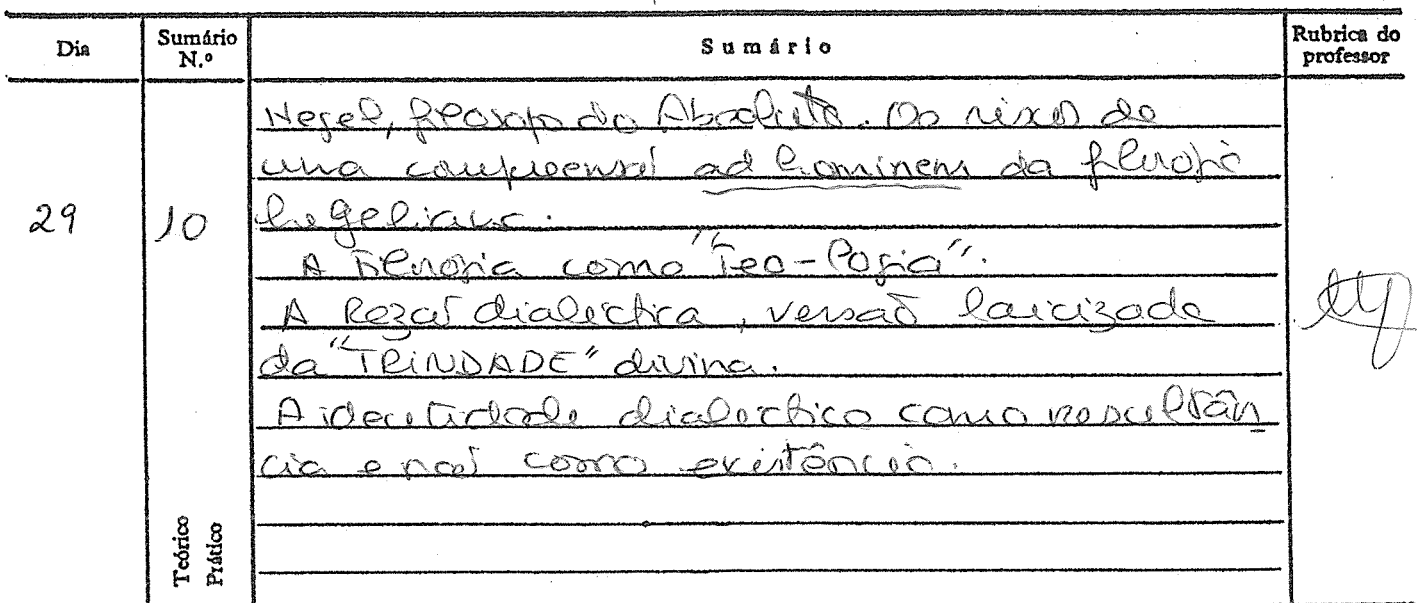 Dia Sumário N.º Sumário Rubrica do professor
Hegel, filosofo do Absoluto. Do risco de
uma compreensaõ ad hominem da filosofia
29 10 hegeliana.
A Filosofia como "Teo-logia".
A Razaõ dialectica, versaõ laicizada
da "TRINDADE" divina.
A identidade dialectica como resultân
cia e naõ como existência.
Teórico
Prático